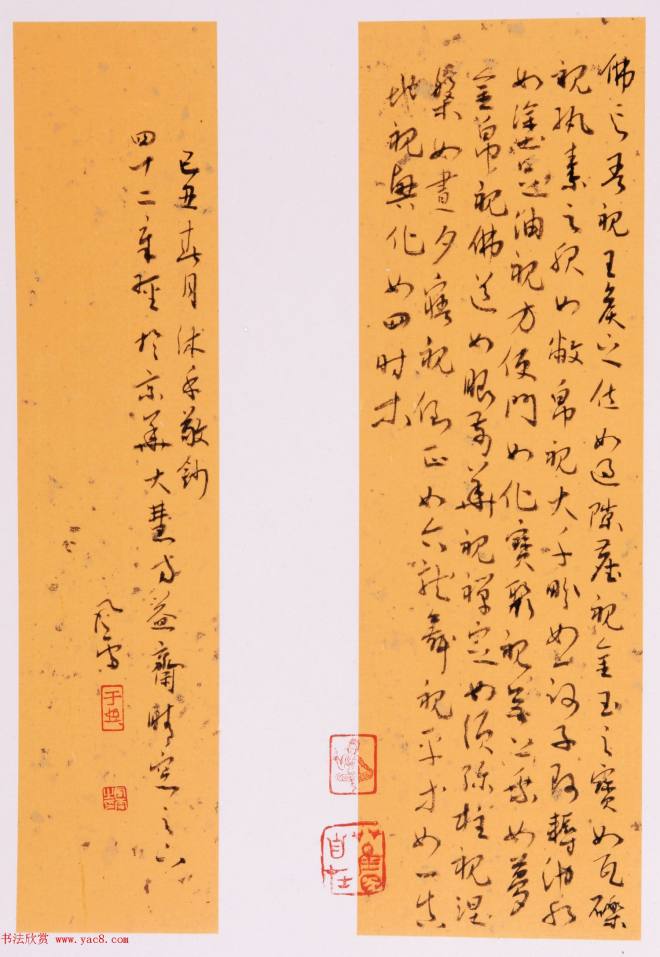 佛言吾視王侯之位如過隙塵視金玉之寶如瓦礫
視紈素之服如敝帛視大千界如一訶子阿耨池水
如塗足油視方便門如化寶聚視無上乘如夢
金帛視佛道如眼前華視禪定如須彌柱視涅
槃如晝夕寤視倒正如六龍舞視平等如一真
地視興化如四時木
己丑春月沐手敬鈔
四十二章經於京華大慧寺益齋晴窗之下
自在
书法欣赏 www.yac8.com